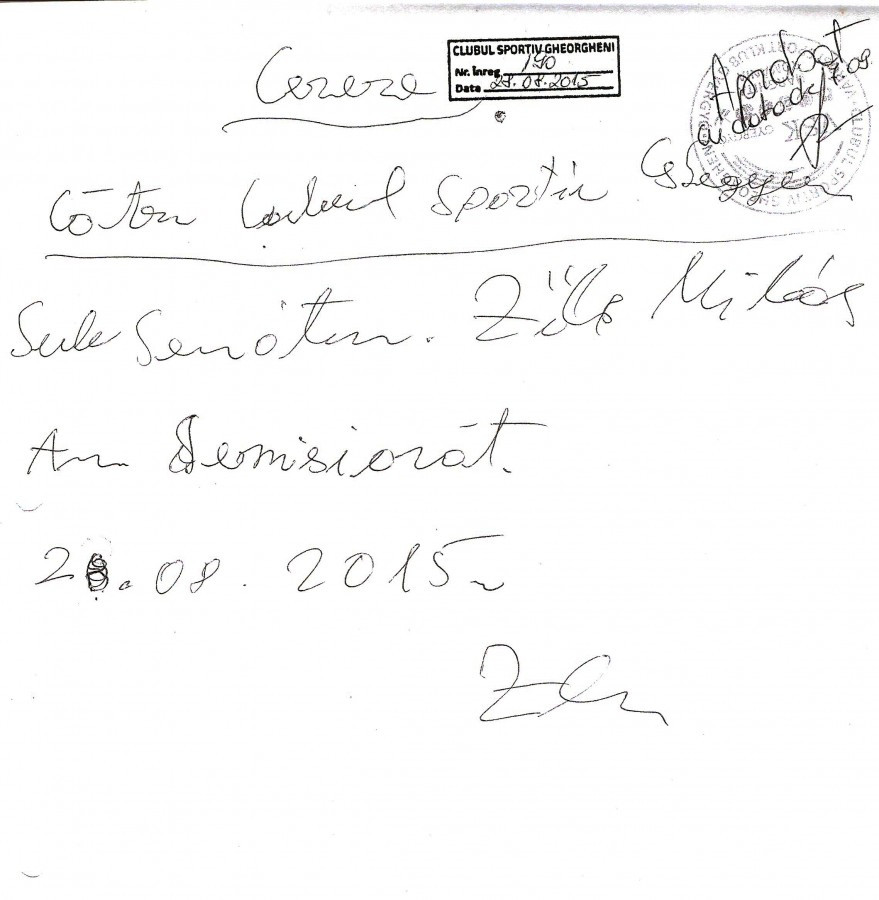 Cerere
CLUBUL SPORTIV GHEORGHENI
Nr. înreg. 190
Data 28.08.2015
Aprobat
cu data de 7.09.
CLUBUL SPORTIV GHEORGHENI
Cótre Clubul Sportiv
Sub Semótu. Zöld Miklós
Am Demisionát.
28.08.2015